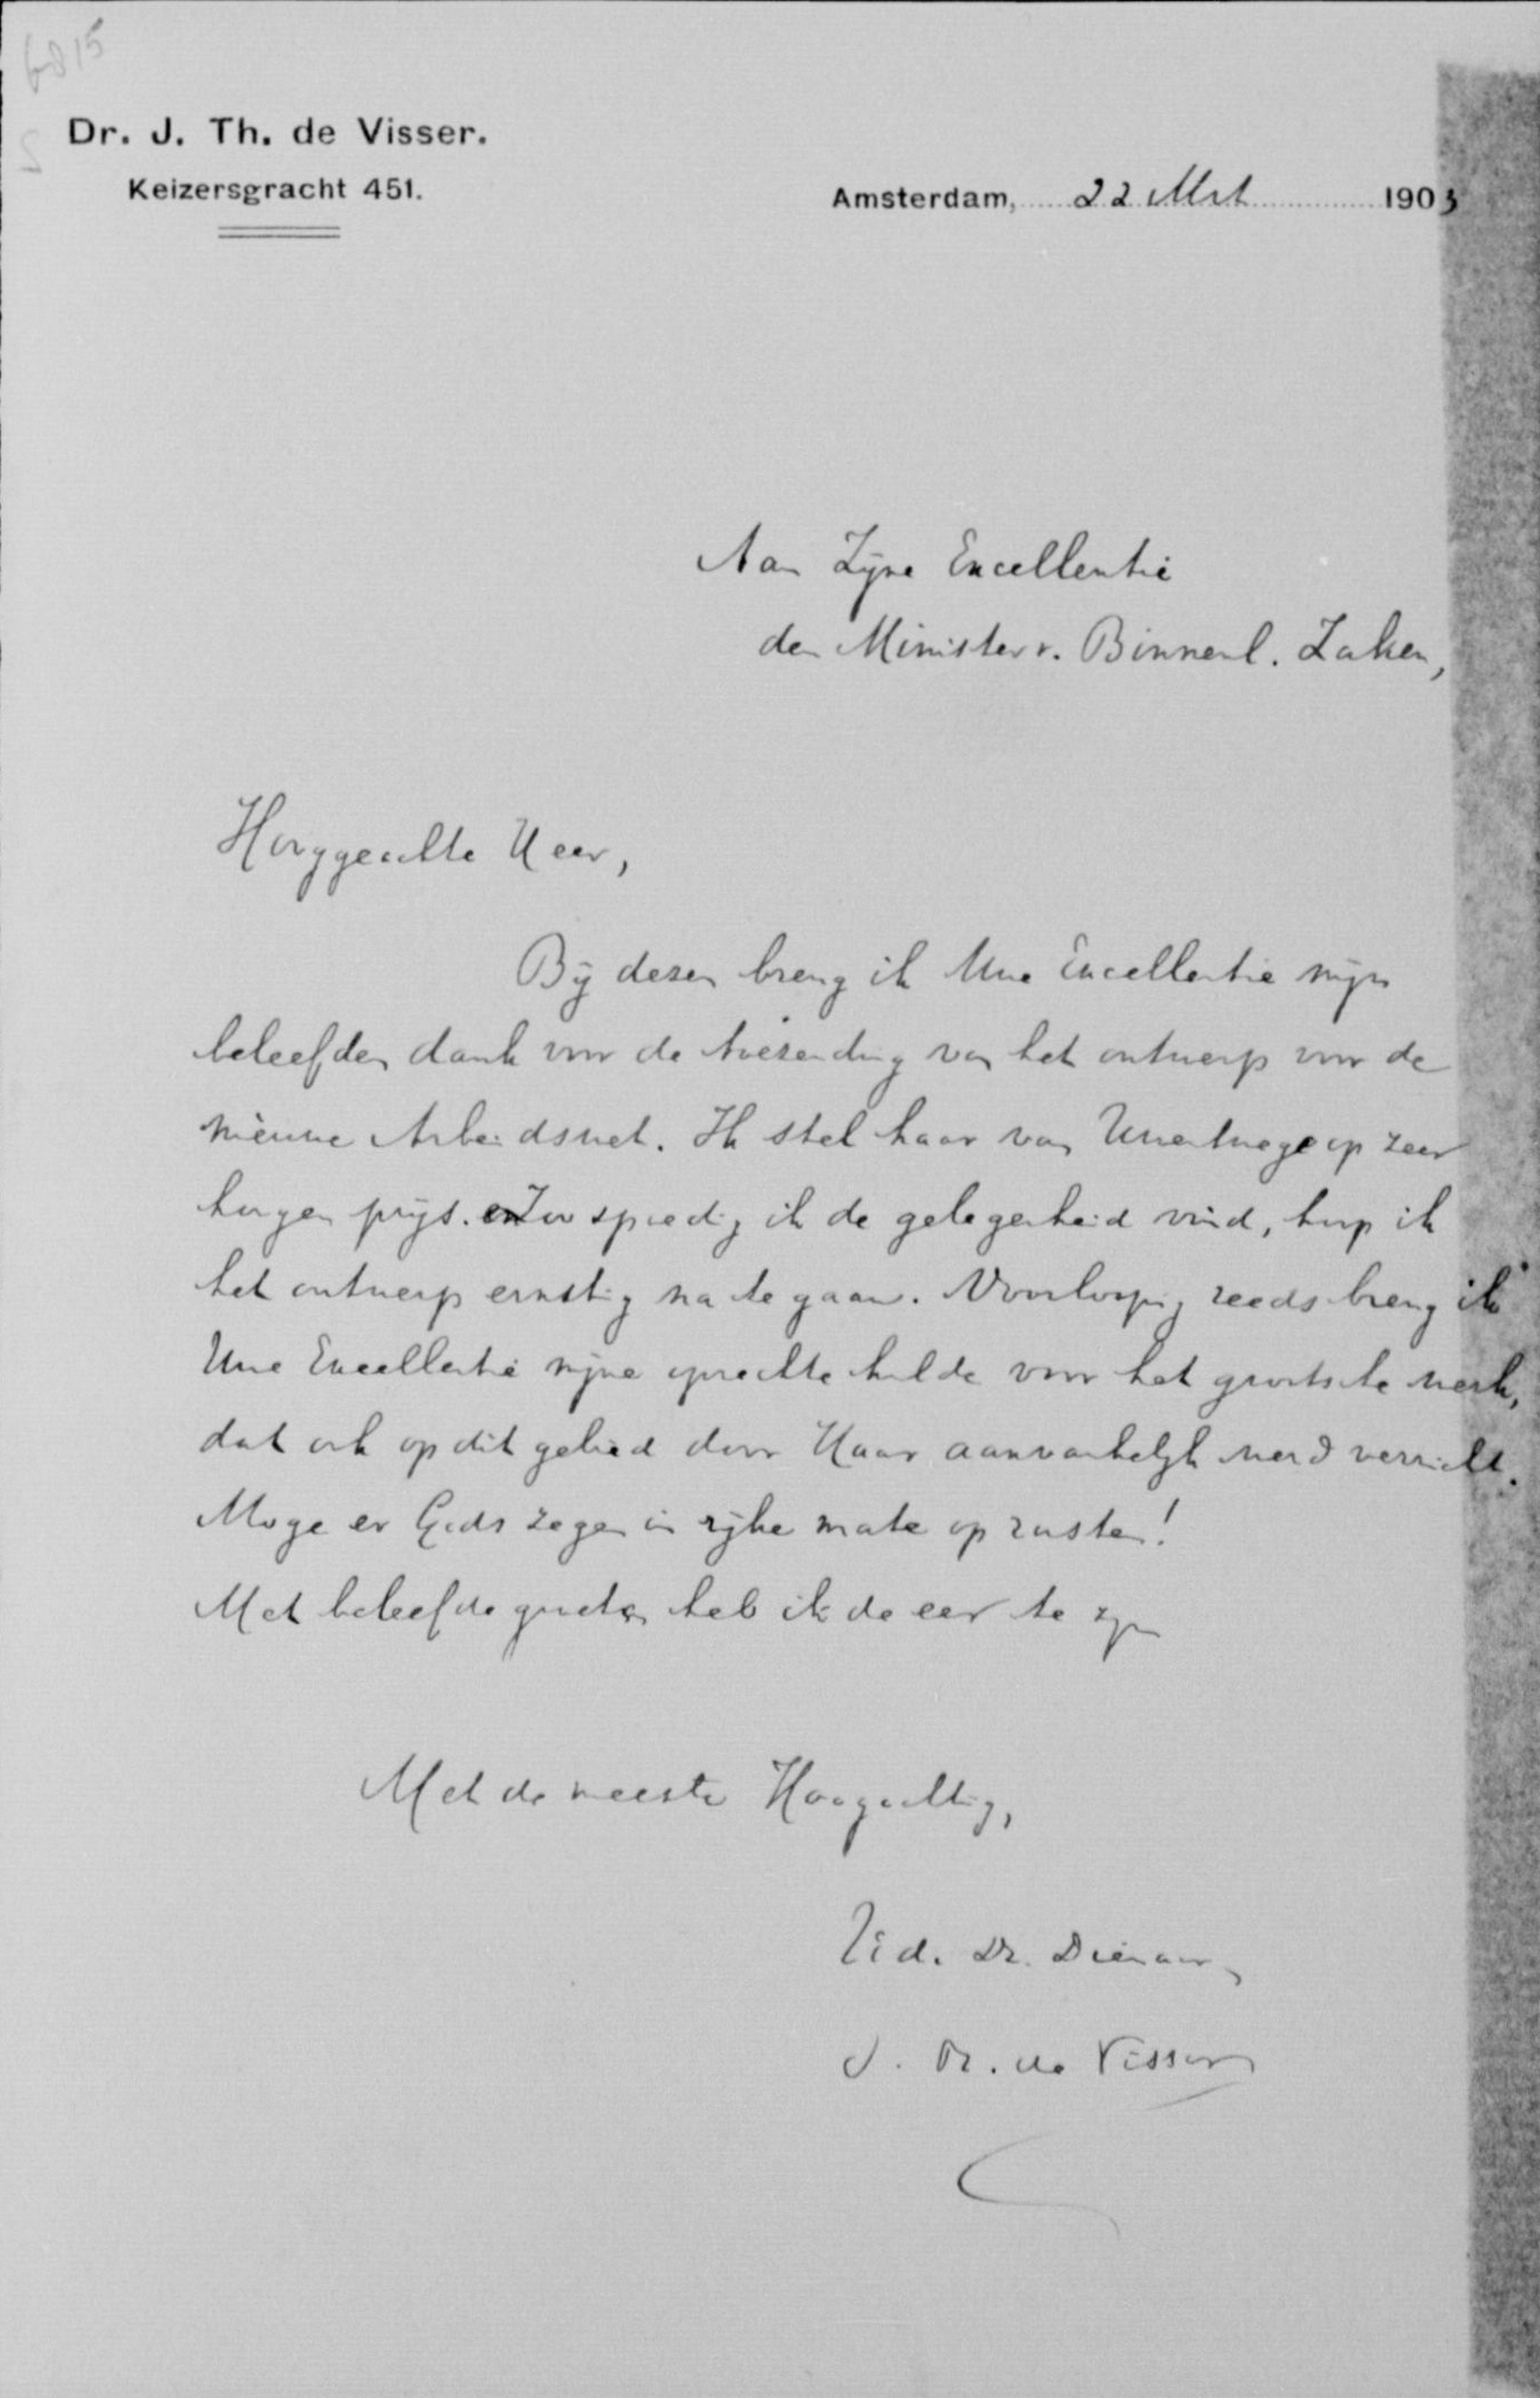 6815
Dr. J. Th. de Visser.
Keizersgracht 451.
Amsterdam, 22 Mrt 1903
Aan Zijne Excellentie
den Minister v. Binnenl. Zaken,
Hooggeachte Heer,
Bij dezen breng ik Uwe Excellentie mijn
beleefden dank voor de toezending van het ontwerp voor de
nieuwe Arbeidswet. Ik stel haar van Uwentwege op zeer
hoogen prijs. Zoo spoedig ik de gelegenheid vind, hoop ik
het ontwerp ernstig na te gaan. Voorloopig reeds breng ik
Uwe Excellentie mijne oprechte hulde voor het grootsche werk,
dat ook op dit gebied door Haar aanvankelijk werd verricht.
Moge er Gods zegen in rijke mate op rusten!
Met beleefde groeten heb ik de eer te zijn
Met de meeste Hoogachting,
UEd. Dr. Dienaar,
J. Th. de Visser